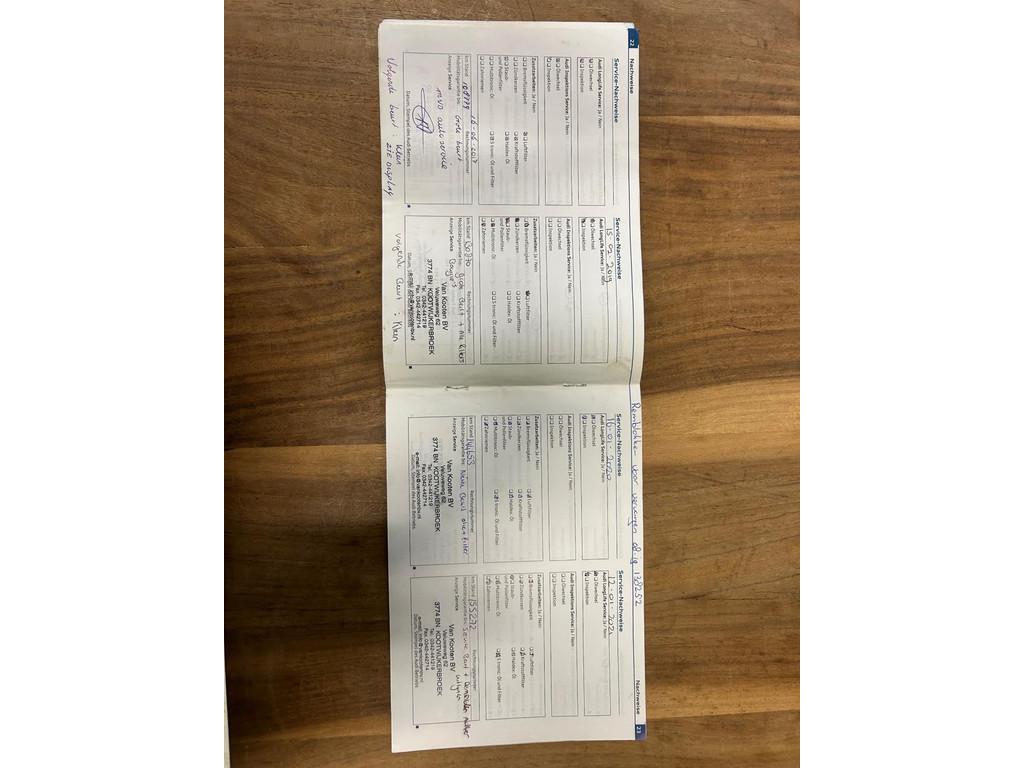 22 Nachweise
Service-Nachweise
Audi LongLife Service: Ja / Nein
Ölwechsel
Inspektion
Audi Inspektions Service: Ja / Nein
Ölwechsel
Inspektion
Zusatzarbeiten: Ja / Nein
Bremsflüssigkeit
Luftfilter
Zündkerzen
Kraftstofffilter
Staub-
und Pollenfilter
Haldex: Öl
Multitronic: Öl
S tronic: Öl und Filter
Zahnriemen
km Stand
Rechnungsnummer
16-06-2017
Mobilitätsgarantie bis: Grote beurt
Anzeige Service
MVO autoservice
Datum, Stempel des Audi Betriebs
Volgende beurt: klein
ZIE DISPLAY
Service-Nachweise
15-02-2019
Audi LongLife Service: Ja / Nein
Ölwechsel
Inspektion
Audi Inspektions Service: Ja / Nein
Ölwechsel
Inspektion
Zusatzarbeiten: Ja / Nein
Bremsflüssigkeit
Luftfilter
Zündkerzen
Kraftstofffilter
Staub-
und Pollenfilter
Haldex: Öl
Multitronic: Öl
S tronic: Öl und Filter
Zahnriemen
km Stand
Rechnungsnummer
Mobilitätsgarantie bis:
Anzeige Service Bougies
Van Kooten BV
Veluweweg 62
3774 BN KOOTWIJKERBROEK
Tel. 0342-441219
Fax. 0342-442714
volgende Beurt: Klein
Remblokken voor vervangen 08-19 138252
Service-Nachweise
16-01-2020
Audi LongLife Service: Ja / Nein
Ölwechsel
Inspektion
Audi Inspektions Service: Ja / Nein
Ölwechsel
Inspektion
Zusatzarbeiten: Ja / Nein
Bremsflüssigkeit
Luftfilter
Zündkerzen
Kraftstofffilter
Staub-
und Pollenfilter
Haldex: Öl
Multitronic: Öl
S tronic: Öl und Filter
Zahnriemen
km Stand
Rechnungsnummer
Mobilitätsgarantie bis: Kleine Beurt olie + filter
Anzeige Service
Van Kooten BV
Veluweweg 62
3774 BN KOOTWIJKERBROEK
Tel. 0342-441219
Fax. 0342-442714
e-mail: info@vankootenbv.nl
Datum, Stempel des Audi Betriebs
Nachweise 23
Service-Nachweise
12-01-2021
Audi LongLife Service: Ja / Nein
Ölwechsel
Inspektion
Audi Inspektions Service: Ja / Nein
Ölwechsel
Inspektion
Zusatzarbeiten: Ja / Nein
Bremsflüssigkeit
Luftfilter
Zündkerzen
Kraftstofffilter
Staub-
und Pollenfilter
Haldex: Öl
Multitronic: Öl
S tronic: Öl und Filter
Zahnriemen
km Stand 155272
Rechnungsnummer
Mobilitätsgarantie bis:
Anzeige Service
Van Kooten BV
Veluweweg 62
3774 BN KOOTWIJKERBROEK
Tel. 0342-441219
Fax. 0342-442714
e-mail: info@vankootenbv.nl
Datum, Stempel des Audi Betriebs